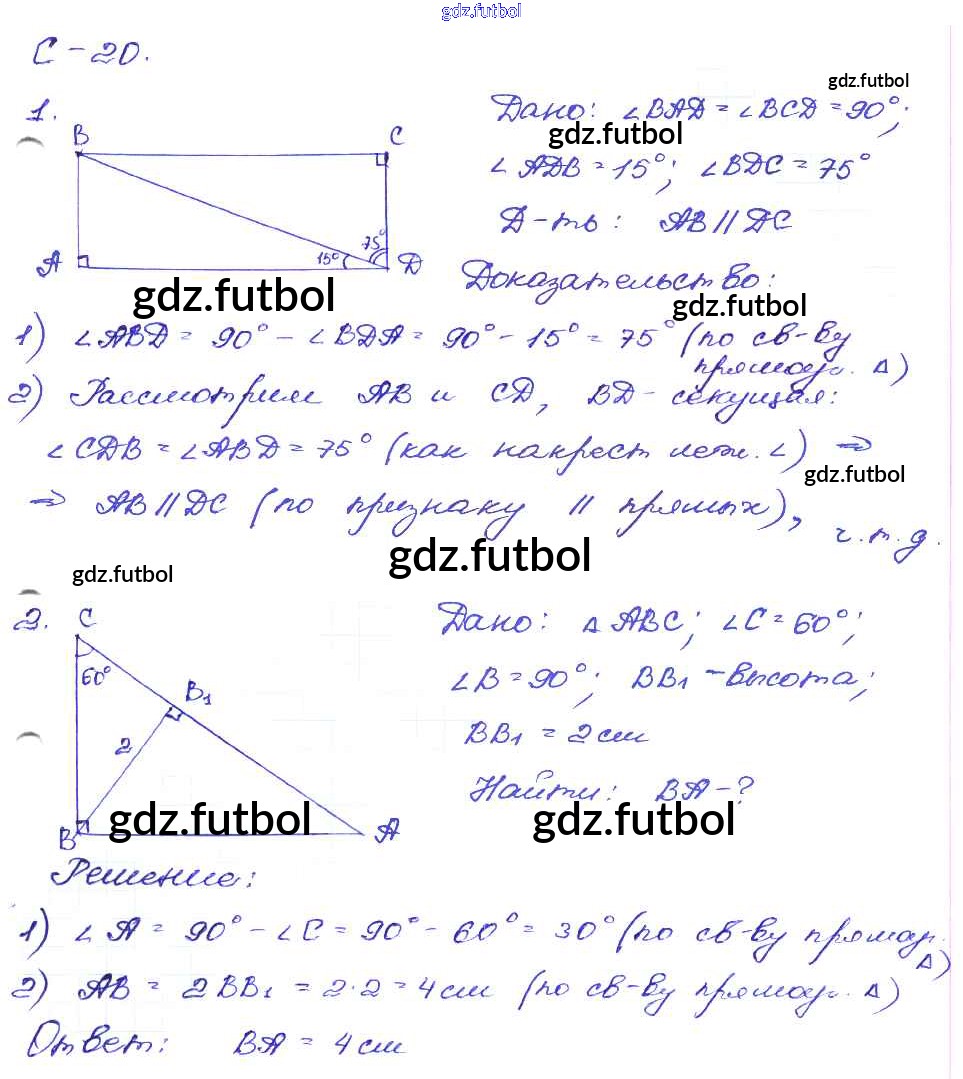 gdz.futbol
С-20.
gdz.futbol
1.
B C
A D
15° 75°
Дано: ∠BAD = ∠BCD = 90°;
gdz.futbol
∠ADB = 15°; ∠BDC = 75°
Д-ть: AB || DC
Доказательство:
gdz.futbol
gdz.futbol
1) ∠ABD = 90° - ∠BDA = 90° - 15° = 75° (по св-ву
прямоуг. Δ)
2) Рассмотрим AB и CD, BD - секущая:
∠CDB = ∠ABD = 75° (как накрест леж. ∠) ⇒
gdz.futbol
⇒ AB || DC (по признаку || прямых),
ч.т.д.
gdz.futbol
gdz.futbol
2.
C
60°
B₁
2
B A
Дано: Δ ABC; ∠C = 60°;
∠B = 90°; BB₁ - высота;
BB₁ = 2 см
Найти: BA - ?
gdz.futbol
gdz.futbol
Решение:
1) ∠A = 90° - ∠C = 90° - 60° = 30° (по св-ву прямоуг.
Δ)
2) AB = 2BB₁ = 2·2 = 4 см (по св-ву прямоуг. Δ)
Ответ: BA = 4 см